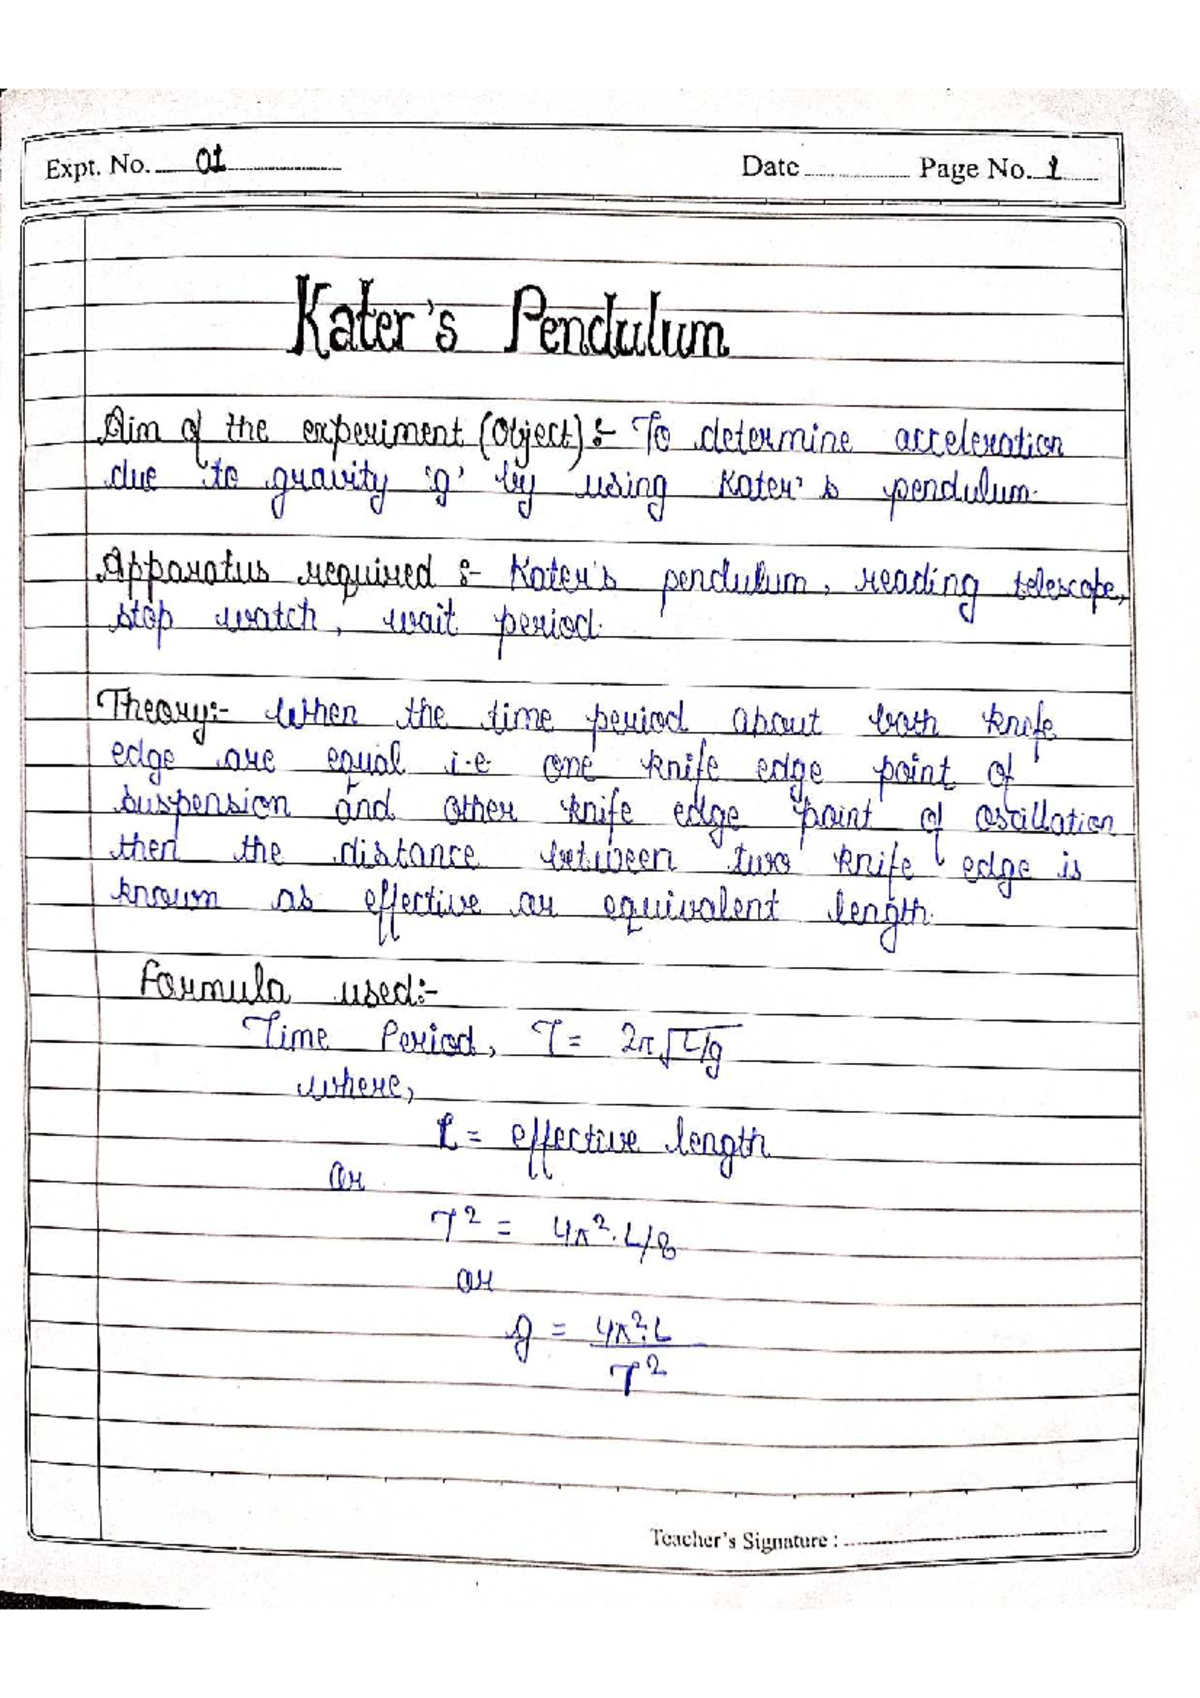 Expt. No. 01 Date Page No. 1
Kater's Pendulum
Aim of the experiment (Object) :- To determine acceleration
due to gravity 'g' by using Kater's pendulum.
Apparatus required :- Kater's pendulum, reading telescope,
stop watch, wait period.
Theory:- When the time period about both knife
edge are equal i.e one knife edge point of
suspension and other knife edge point of oscillation
then the distance between two knife edge is
known as effective or equivalent length.
Formula used:-
Time Period, T = 2π√L/g
where,
L = effective length
or
T² = 4π².L/g
or
g = 4π².L
T²
Teacher's Signature :